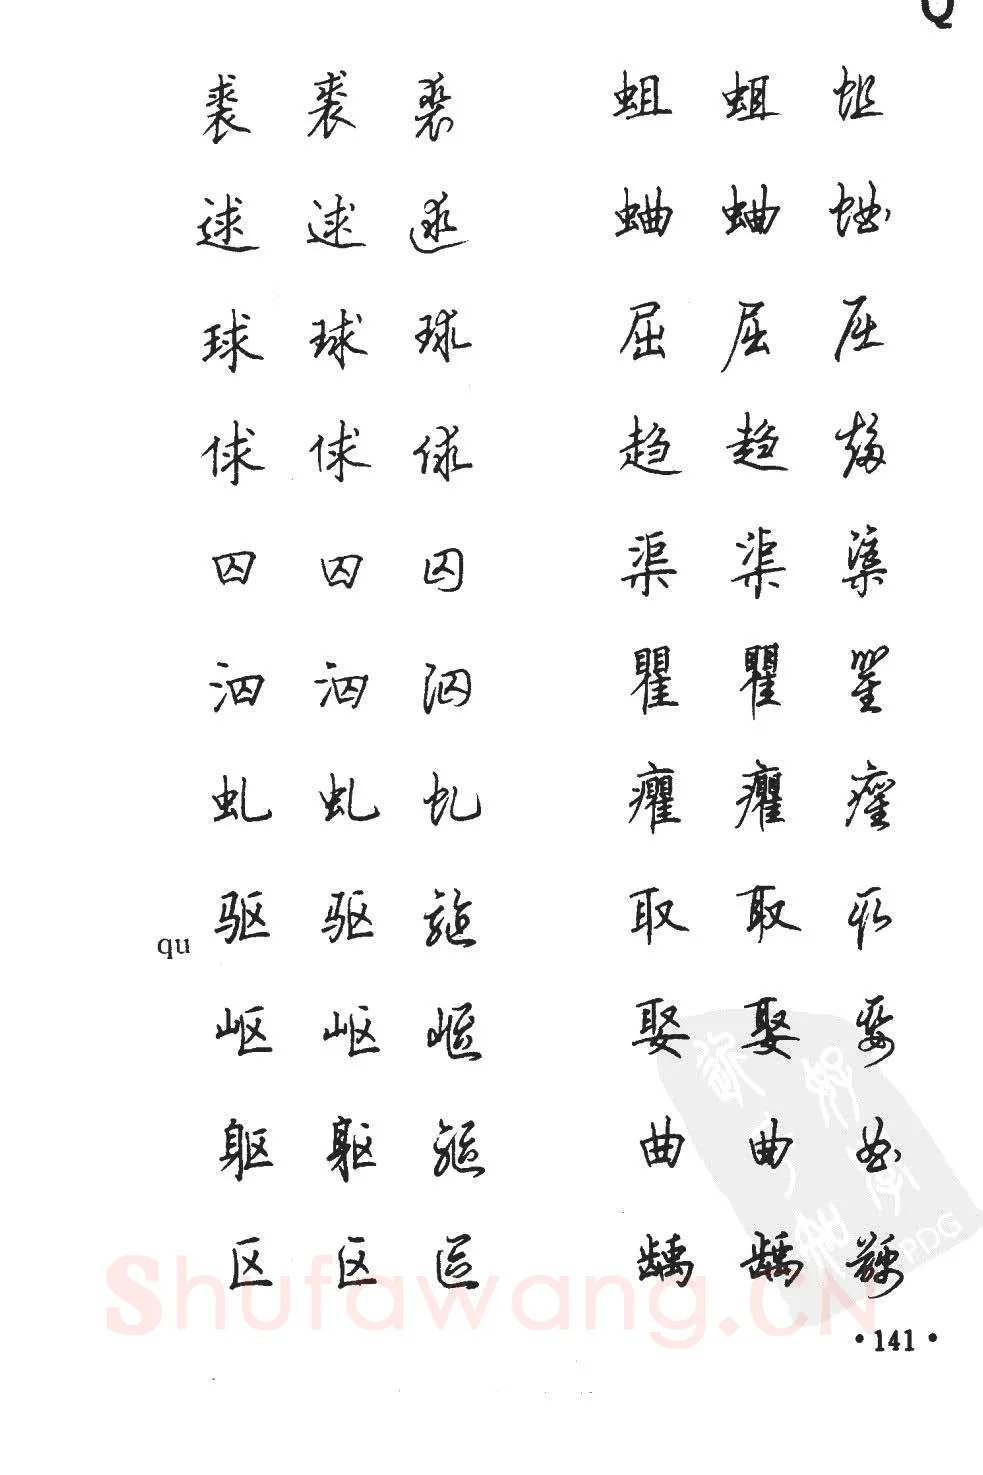 Q
裘 裘 裘 蛆 蛆 蛆
逑 逑 逑 蛐 蛐 蛐
球 球 球 屈 屈 屈
俅 俅 俅 趋 趋 趋
囚 囚 囚 渠 渠 渠
泅 泅 泅 瞿 瞿 瞿
虬 虬 虬 癯 癯 癯
qu 驱 驱 驱 取 取 取
岖 岖 岖 娶 娶 娶
躯 躯 躯 曲 曲 曲
区 区 区 龋 龋 龋
PDG
Shufawang.CN
·141·